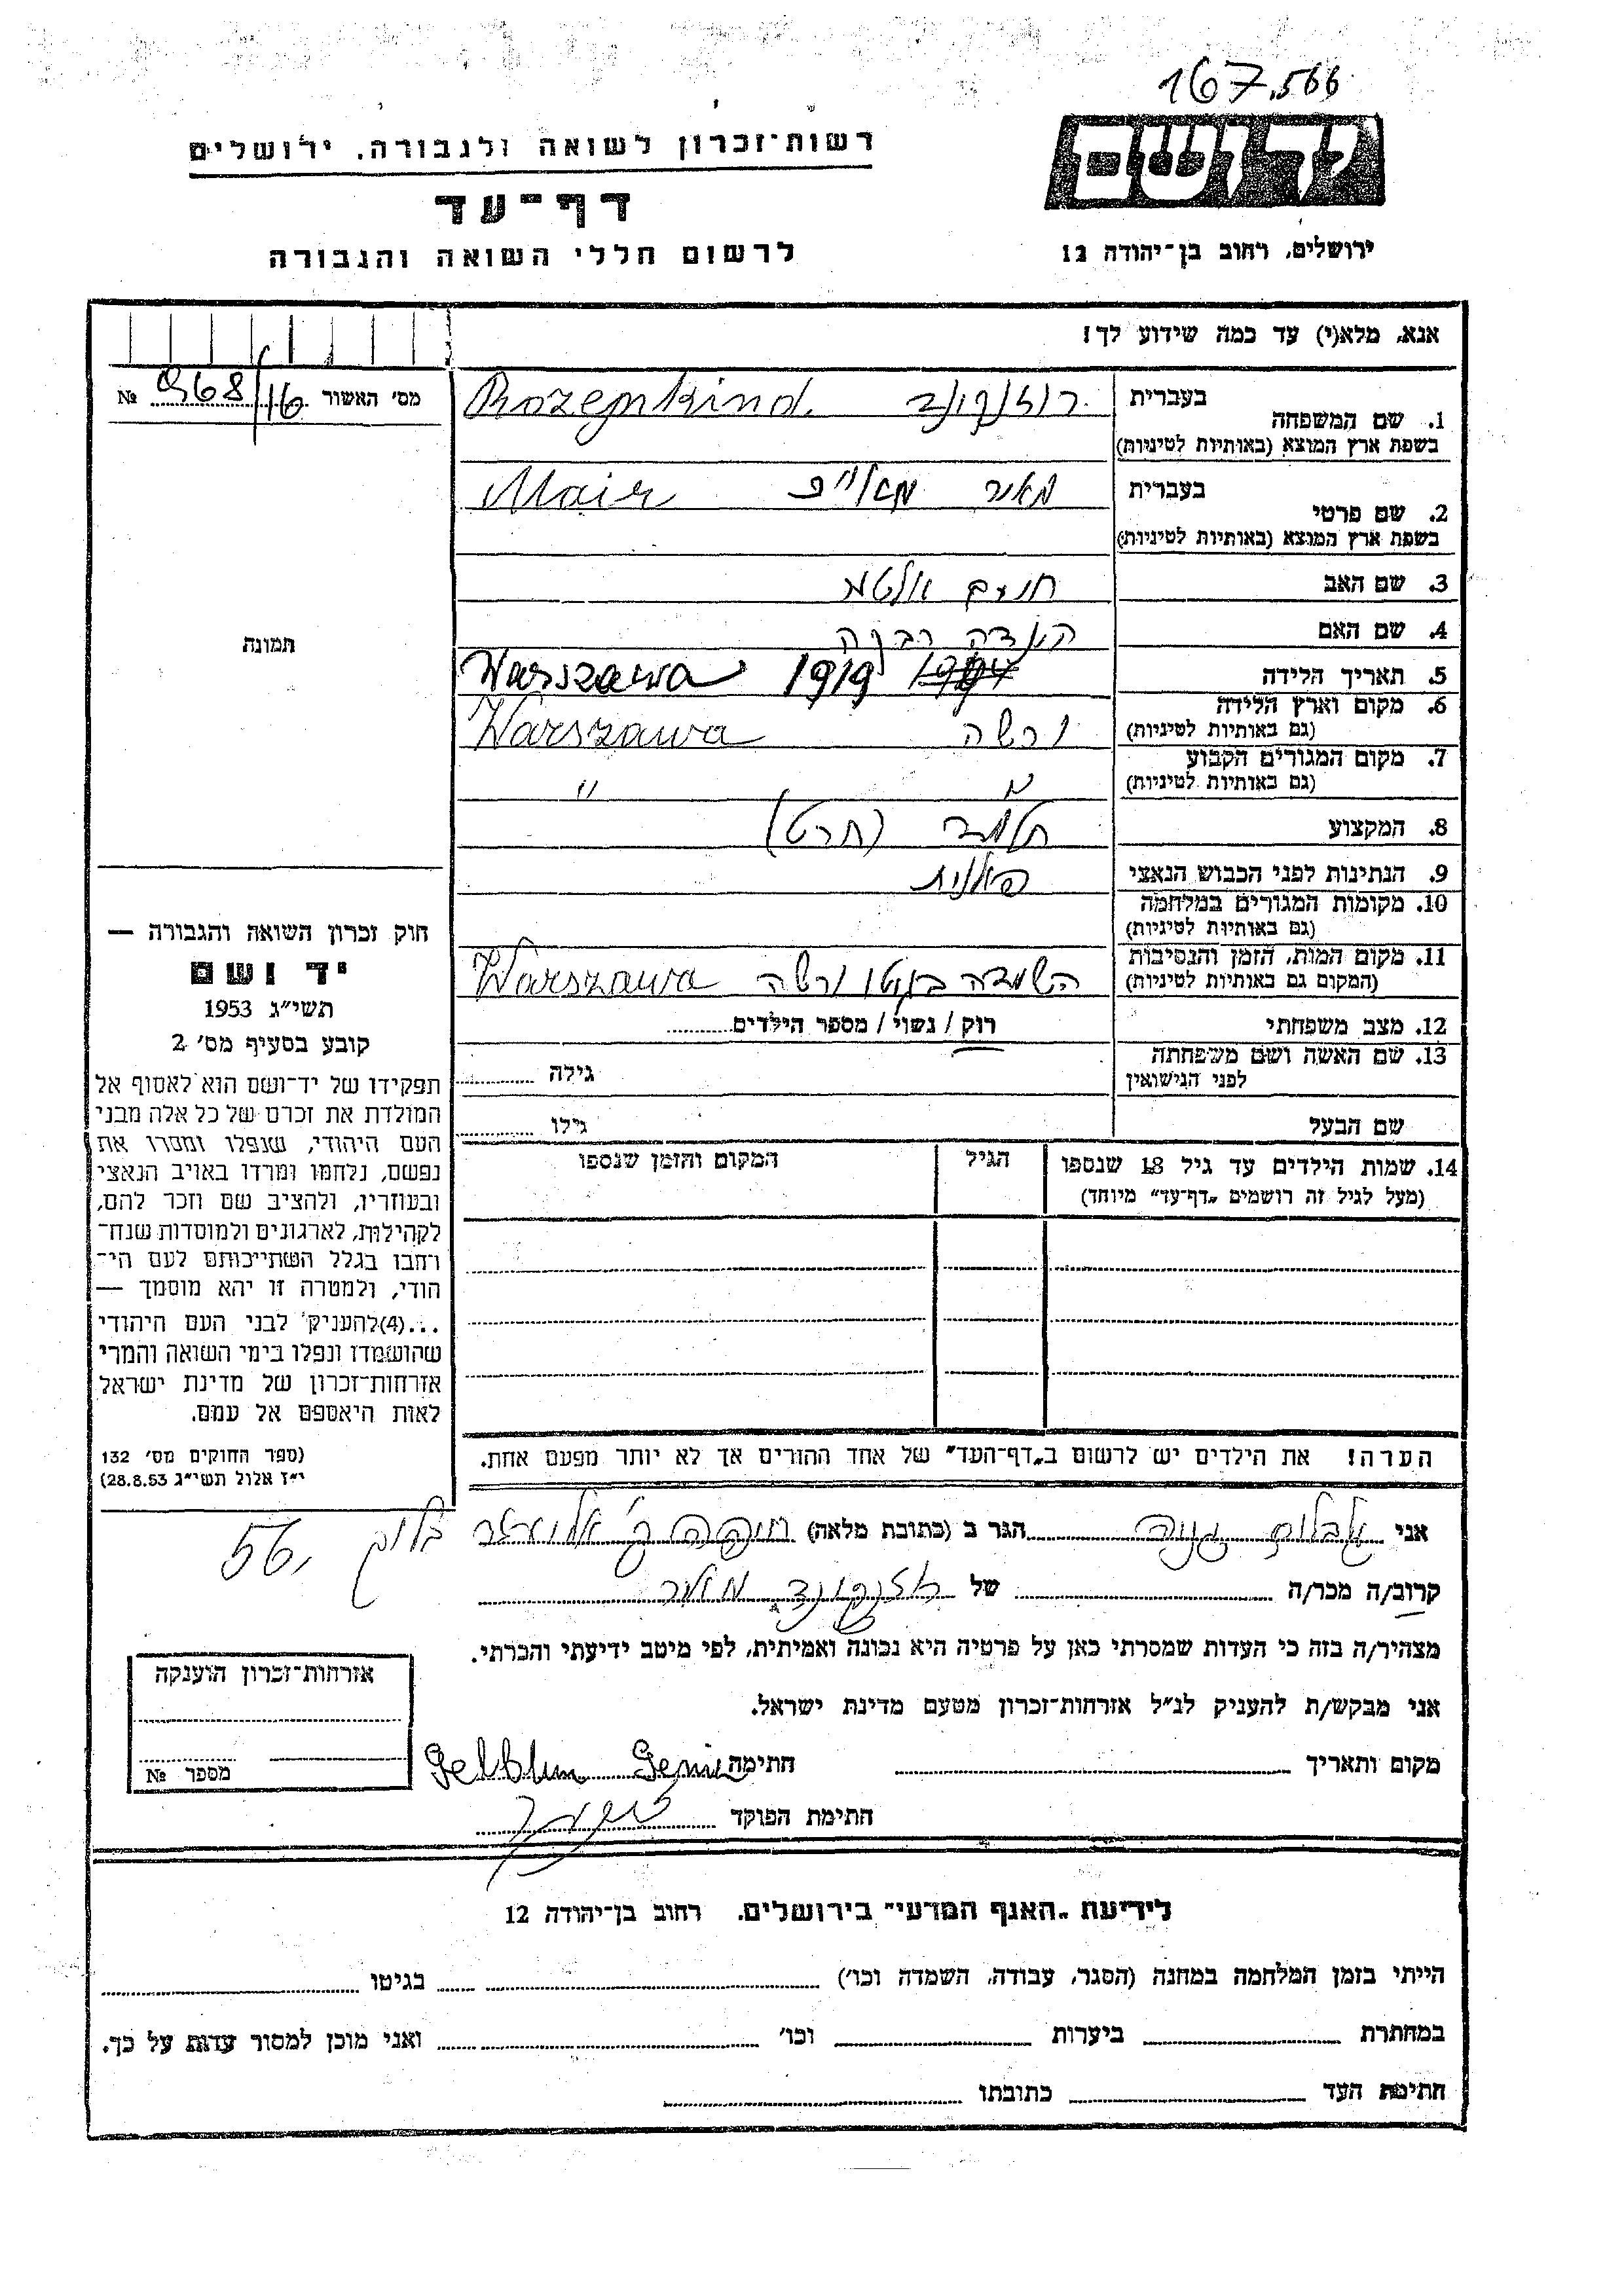 167.566
רשות־זכרון לשואה ולגבורה. ירושלים
דף־עד
לרשום חללי השואה והגבורה
ידושם
ירושלים, רחוב בן־יהודה 12
אנא, מלא(י) עד כמה שידוע לך!
מס׳ האשור 968/16 №
תמונה
1. שם המשפחה
בעברית Rozenkind
בשפת ארץ המוצא (באותיות לטיניות)
2. שם פרטי
בעברית מאיר Mair
בשפת ארץ המוצא (באותיות לטיניות)
3. שם האב חיים אלטר
4. שם האם
5. תאריך הלידה 1919 Warszawa
6. מקום וארץ הלידה ורשה Warszawa
(גם באותיות לטיניות)
7. מקום המגורים הקבוע " "
(גם באותיות לטיניות)
8. המקצוע (חרט)
9. הנתינות לפני הכבוש הנאצי פולנית
10. מקומות המגורים במלחמה
(גם באותיות לטיניות)
11. מקום המות, הזמן והנסיבות השמדה בגטו ורשה Warszawa
(המקום גם באותיות לטיניות)
12. מצב משפחתי רוק / נשוי / מספר הילדים
13. שם האשה ושם משפחתה
לפני הנישואין גילה
שם הבעל גילו
14. שמות הילדים עד גיל 18 שנספו הגיל המקום והזמן שנספו
(מעל לגיל זה רושמים „דף־עד״ מיוחד)
הערה! את הילדים יש לרשום ב„דף־העד״ של אחד ההורים אך לא יותר מפעם אחת.
חוק זכרון השואה והגבורה —
יד ושם
תשי״ג 1953
קובע בסעיף מס׳ 2
תפקידו של יד־ושם הוא לאסוף אל
המולדת את זכרם של כל אלה מבני
העם היהודי, שנפלו ומסרו את
נפשם, נלחמו ומרדו באויב הנאצי
ובעוזריו, ולהציב שם וזכר להם,
לקהילות, לארגונים ולמוסדות שנח־
רחבו בגלל השתייכותם לעם הי־
הודי, ולמטרה זו יהא מוסמך —
...(4)להעניק לבני העם היהודי
שהושמדו ונפלו בימי השואה והמרי
אזרחות־זכרון של מדינת ישראל
לאות היאספם אל עמם.
(ספר החוקים מס׳ 132
י״ז אלול תשי״ג 28.8.53)
אני גלבלום גניה הגר ב (כתובת מלאה) בלוק 56
קרוב/ה מכר/ה של רוזנקינד מאיר
מצהיר/ה בזה כי העדות שמסרתי כאן על פרטיה היא נכונה ואמיתית, לפי מיטב ידיעתי והכרתי.
אני מבקש/ת להעניק לנ״ל אזרחות־זכרון מטעם מדינת ישראל.
מקום ותאריך חתימה Gelblum Genia
חתימת הפוקד
אזרחות־זכרון הוענקה
מספר №
לידיעת „האגף המדעי״ בירושלים. רחוב בן־יהודה 12
הייתי בזמן המלחמה במחנה (הסגר, עבודה, השמדה וכו׳) בגיטו
במחתרת ביערות וכו׳ ואני מוכן למסור עדות על כך.
חתימת העד כתובתו